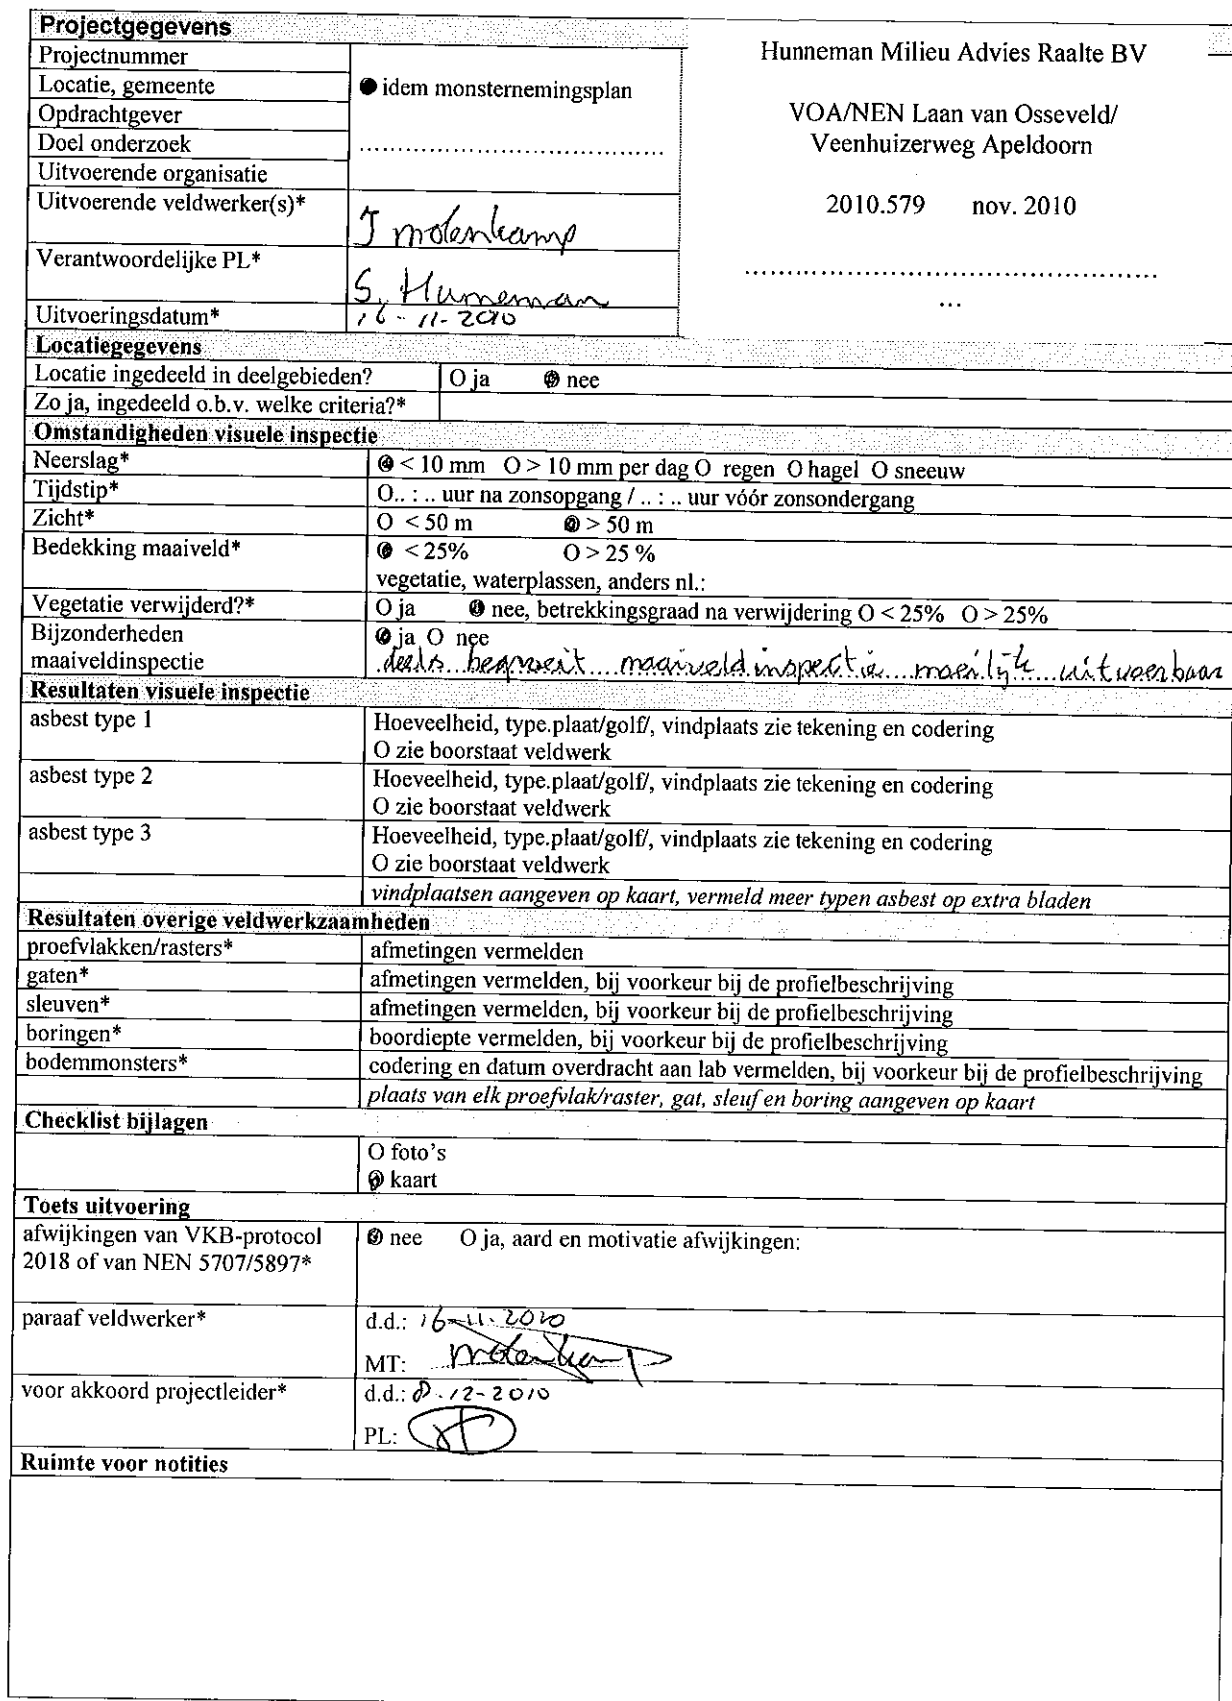 Projectgegevens
Projectnummer
Locatie, gemeente
Opdrachtgever
Doel onderzoek
Uitvoerende organisatie
● idem monsternemingsplan
......................................
Uitvoerende veldwerker(s)* J molenkamp
Verantwoordelijke PL* S. Hunneman
Uitvoeringsdatum* 16-11-2010
Hunneman Milieu Advies Raalte BV
VOA/NEN Laan van Osseveld/
Veenhuizerweg Apeldoorn
2010.579 nov. 2010
..................................................
...
Locatiegegevens
Locatie ingedeeld in deelgebieden? O ja ● nee
Zo ja, ingedeeld o.b.v. welke criteria?*
Omstandigheden visuele inspectie
Neerslag* ● < 10 mm O > 10 mm per dag O regen O hagel O sneeuw
Tijdstip* O.. : .. uur na zonsopgang / .. : .. uur vóór zonsondergang
Zicht* O < 50 m ● > 50 m
Bedekking maaiveld* ● < 25% O > 25 %
vegetatie, waterplassen, anders nl.:
Vegetatie verwijderd?* O ja ● nee, betrekkingsgraad na verwijdering O < 25% O > 25%
Bijzonderheden ● ja O nee
maaiveldinspectie deels begroeit maaiveldinspectie moeilijk uitvoerbaar
Resultaten visuele inspectie
asbest type 1 Hoeveelheid, type.plaat/golf/, vindplaats zie tekening en codering
O zie boorstaat veldwerk
asbest type 2 Hoeveelheid, type.plaat/golf/, vindplaats zie tekening en codering
O zie boorstaat veldwerk
asbest type 3 Hoeveelheid, type.plaat/golf/, vindplaats zie tekening en codering
O zie boorstaat veldwerk
vindplaatsen aangeven op kaart, vermeld meer typen asbest op extra bladen
Resultaten overige veldwerkzaamheden
proefvlakken/rasters* afmetingen vermelden
gaten* afmetingen vermelden, bij voorkeur bij de profielbeschrijving
sleuven* afmetingen vermelden, bij voorkeur bij de profielbeschrijving
boringen* boordiepte vermelden, bij voorkeur bij de profielbeschrijving
bodemmonsters* codering en datum overdracht aan lab vermelden, bij voorkeur bij de profielbeschrijving
plaats van elk proefvlak/raster, gat, sleuf en boring aangeven op kaart
Checklist bijlagen
O foto's
● kaart
Toets uitvoering
afwijkingen van VKB-protocol ● nee O ja, aard en motivatie afwijkingen:
2018 of van NEN 5707/5897*
paraaf veldwerker* d.d.: 16-11-2010
MT: molenkamp
voor akkoord projectleider* d.d.: 8-12-2010
PL:
Ruimte voor notities